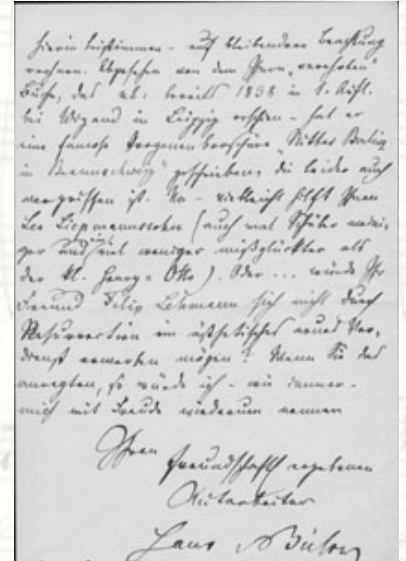 hierin beistimmen – auf bleibendere Beachtung
rechnen. Abgesehen von dem Ihnen „verehrten"
Buche, das ab: bereits 1838 in 1. Aufl.
bei Wigand in Leipzig erschien – hat er
eine famose Broschüre „Ritter
in Braunschweig" geschrieben, die leider auch
vergriffen ist. Na – vielleicht hilft Ihnen
Leo Liepmannssohn (auch mal Schüler
und viel weniger mißglückter als
der kl. Georg = Otto). Oder ... würde Ihr
Freund Felix Lehmann sich nicht durch
Resurrection ein ästhetisches neues Ver-
dienst erwerben mögen? Wenn Sie das
anregten, so würde ich – wie immer –
mich mit Freude wiederum nennen
Ihren
freundschaftl ergebenen
Mitarbeiter
Hans v Bülow